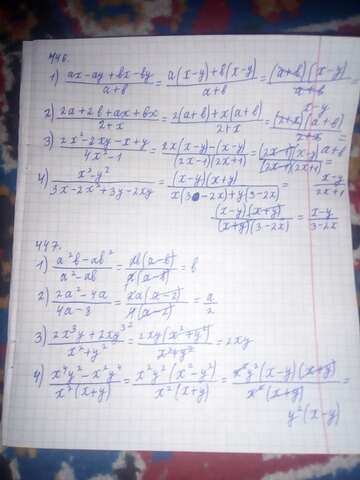 446.
1) (ax-ay+bx-by)/(a+b) = (a(x-y)+b(x-y))/(a+b) = ((a+b)(x-y))/(a+b)
x-y
2) (2a+2b+ax+bx)/(2+x) = (2(a+b)+x(a+b))/(2+x) = ((2+x)(a+b))/(2+x)
a+b
3) (2x²-2xy-x+y)/(4x²-1) = (2x(x-y)-(x-y))/((2x-1)(2x+1)) = ((2x-1)(x-y))/((2x-1)(2x+1))
= (x-y)/(2x+1)
4) (x²-y²)/(3x-2x²+3y-2xy) = ((x-y)(x+y))/(x(3-2x)+y(3-2x)) =
((x-y)(x+y))/((x+y)(3-2x)) = (x-y)/(3-2x)
447.
1) (a²b-ab²)/(a²-ab) = (ab(a-b))/(a(a-b)) = b
2) (2a²-4a)/(4a-8) = (2a(a-2))/(4(a-2)) = a/2
3) (2x³y+2xy³)/(x²+y²) = (2xy(x²+y²))/(x²+y²) = 2xy
4) (x⁴y²-x²y⁴)/(x²(x+y)) = (x²y²(x²-y²))/(x²(x+y)) = (x²y²(x-y)(x+y))/(x²(x+y)) =
y²(x-y)